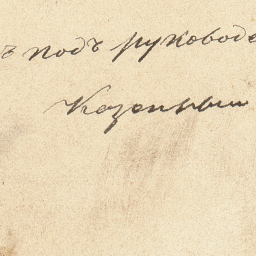 ъ подъ руководс
Казенный